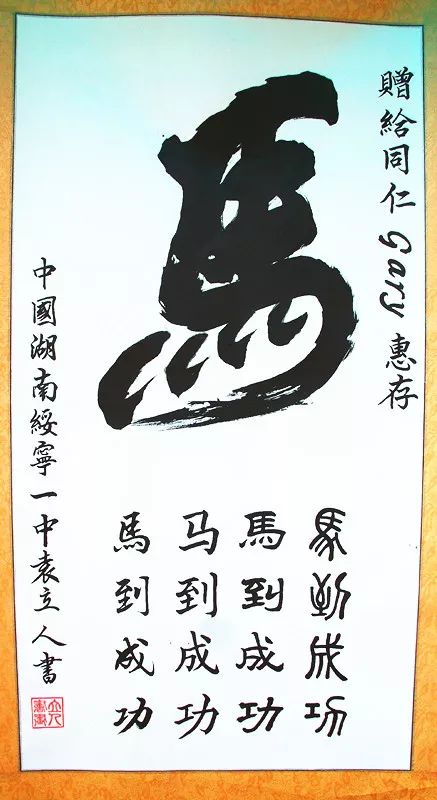 贈給同仁 Gary 惠存
馬
馬到成功
馬到成功
马到成功
馬到成功
中國湖南綏寧一中袁立人書